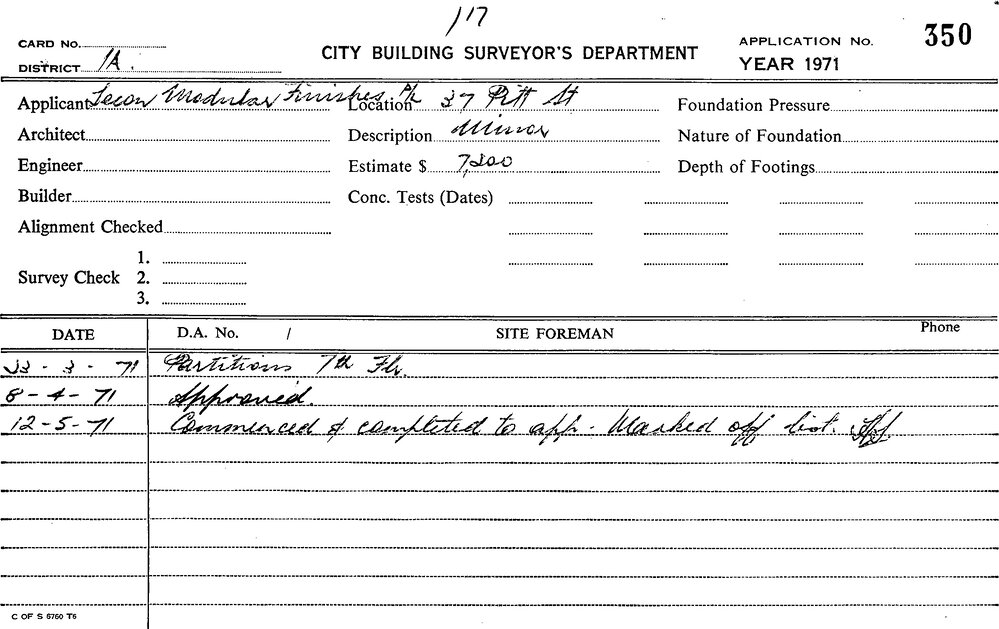 117
CARD No.
CITY BUILDING SURVEYOR'S DEPARTMENT
APPLICATION No. 350
DISTRICT 1A.
YEAR 1971
Applicant Modular Finishes P/L Location 37 Pitt St Foundation Pressure
Architect Description Minor Nature of Foundation
Engineer Estimate $ 7,200 Depth of Footings
Builder Conc. Tests (Dates)
Alignment Checked
1.
Survey Check 2.
3.
DATE D.A. No. / SITE FOREMAN Phone
23-3-71 Partitions 7th Flr.
8-4-71 Approved.
12-5-71 Commenced & completed to app. Marked off list.
C OF S 6760 T6